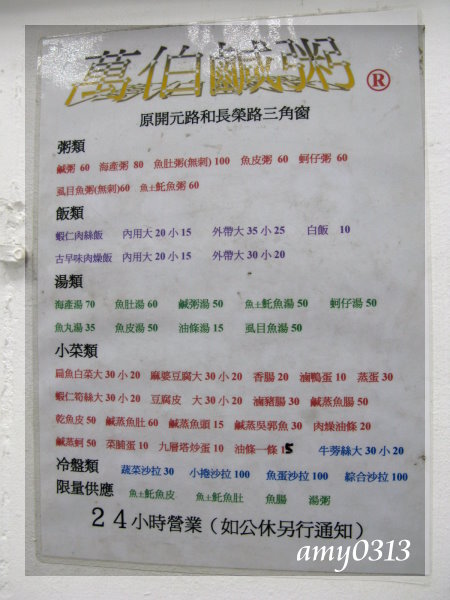 萬伯鹹粥 ®
原開元路和長榮路三角窗
粥類
鹹粥 60 海產粥 80 魚肚粥(無刺) 100 魚皮粥 60 蚵仔粥 60
虱目魚粥(無刺)60 魚土魠魚粥 60
飯類
蝦仁肉絲飯 內用大 20 小 15 外帶大 35 小 25 白飯 10
古早味肉燥飯 內用大 20 小 15 外帶大 30 小 20
湯類
海產湯 70 魚肚湯 60 鹹粥湯 50 魚土魠魚湯 50 蚵仔湯 50
魚丸湯 35 魚皮湯 50 油條湯 15 虱目魚湯 50
小菜類
扁魚白菜大 30 小 20 麻婆豆腐大 30 小 20 香腸 20 滷鴨蛋 10 蒸蛋 30
蝦仁筍絲大 30 小 20 豆腐皮 大 30 小 20 滷豬腸 30 鹹蒸魚腸 50
乾魚皮 50 鹹蒸魚肚 60 鹹蒸魚頭 15 鹹蒸吳郭魚 30 肉燥油條 20
鹹蒸蚵 50 菜脯蛋 10 九層塔炒蛋 10 油條一條 15 牛蒡絲大 30 小 20
冷盤類 蔬菜沙拉 30 小捲沙拉 100 魚蛋沙拉 100 綜合沙拉 100
限量供應 魚土魠魚皮 魚土魠魚肚 魚腸 湯粥
24小時營業(如公休另行通知)
amy0313